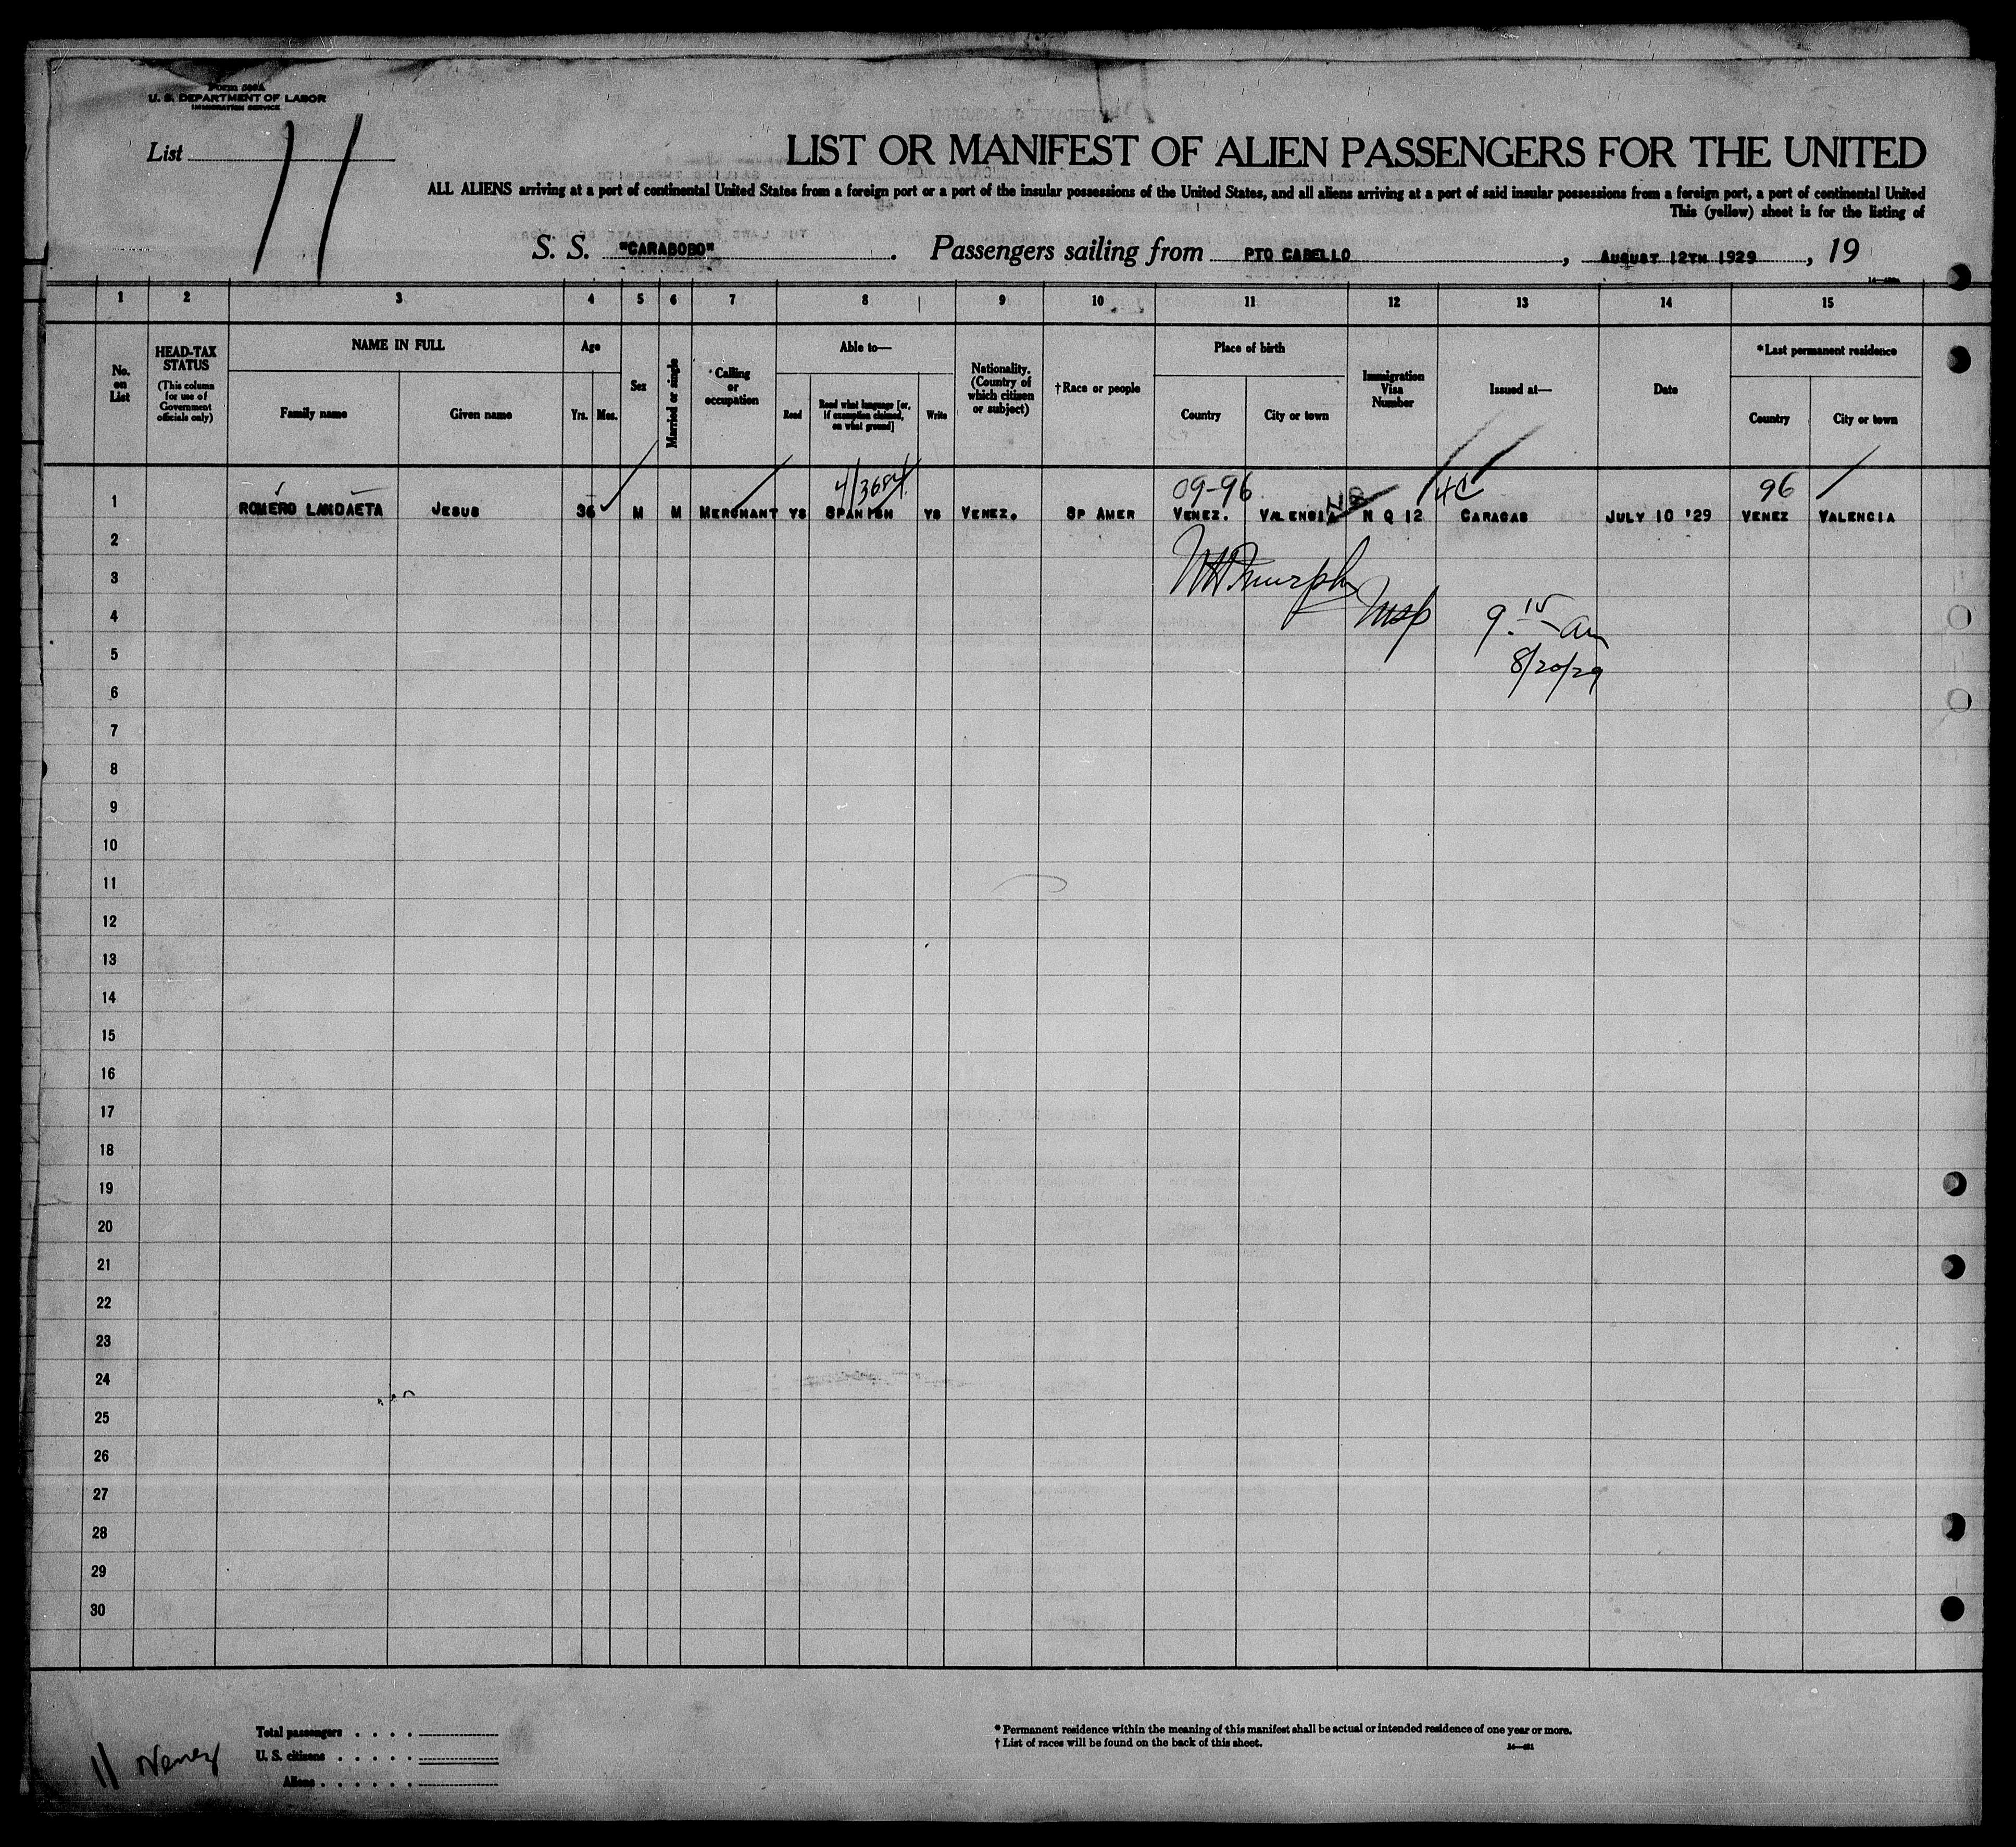 Form 500A
U. S. DEPARTMENT OF LABOR
IMMIGRATION SERVICE
List 11
LIST OR MANIFEST OF ALIEN PASSENGERS FOR THE UNITED
ALL ALIENS arriving at a port of continental United States from a foreign port or a port of the insular possessions of the United States, and all aliens arriving at a port of said insular possessions from a foreign port, a port of continental United
This (yellow) sheet is for the listing of
S. S. "CARABOBO". Passengers sailing from PTO CABELLO, AUGUST 12TH 1929, 19
1 2 3 4 5 6 7 8 9 10 11 12 13 14 15
No. on List
HEAD-TAX STATUS
(This column for use of Government officials only)
NAME IN FULL
Family name
Given name
Age
Yrs. Mos.
Sex
Married or single
Calling or occupation
Able to—
Read
Read what language [or, if exemption claimed, on what ground]
Write
Nationality. (Country of which citizen or subject)
†Race or people
Place of birth
Country
City or town
Immigration Visa Number
Issued at—
Date
*Last permanent residence
Country
City or town
09-96 4C 96
1 ROMERO LANDAETA JESUS 36 M M MERCHANT YS SPANISH YS VENEZ. SP AMER VENEZ. VALENCIA N Q 12 CARACAS JULY 10 '29 VENEZ VALENCIA
2
3 Murphy
4 Insp 9.15 am
5 8/20/29
6
7
8
9
10
11
12
13
14
15
16
17
18
19
20
21
22
23
24
25
26
27
28
29
30
Total passengers . . . .
U. S. citizens . . . . .
Aliens . . . . . .
* Permanent residence within the meaning of this manifest shall be actual or intended residence of one year or more.
† List of races will be found on the back of this sheet.
11 Venez